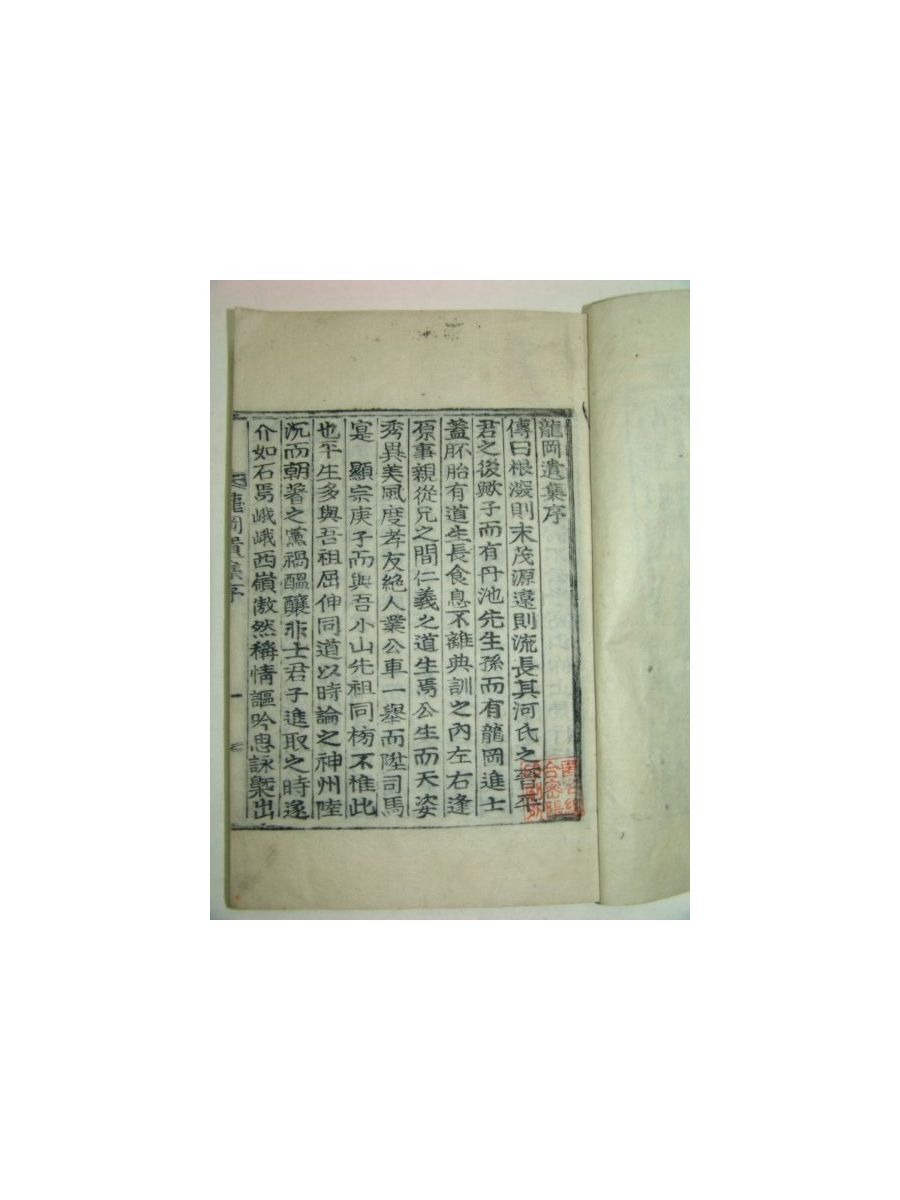 龍岡遺集序
傳曰根深則末茂源遠則流長其河氏之晉平
君之後歟子而有丹池先生孫而有龍岡進士
蓋胚胎有道生長食息不離典訓之內左右逢
原事親從兄之間仁義之道生焉公生而天姿
秀異美風度孝友絶人業公車一舉而陞司馬
寔 顯宗庚子而與吾小山先祖同榜不惟此
也平生多與吾祖屈伸同道以時論之神州陸
沉而朝著之黨禍醞釀非士君子進取之時遂
介如石焉峨峨西嶺傲然稱情謳吟思詠槩出
龍岡遺集序 一